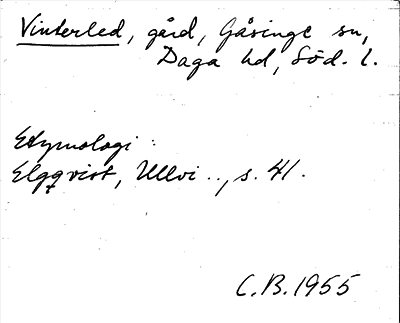 Vinterled, gård, Gåsinge sn,
Daga hd, Söd. l.
Etymologi:
Elgqvist, Ullvi .., s. 41.
C.B. 1955